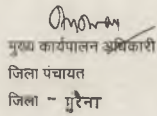 मुख्य कार्यपालन अधिकारी
जिला पंचायत
जिला - मुरैना